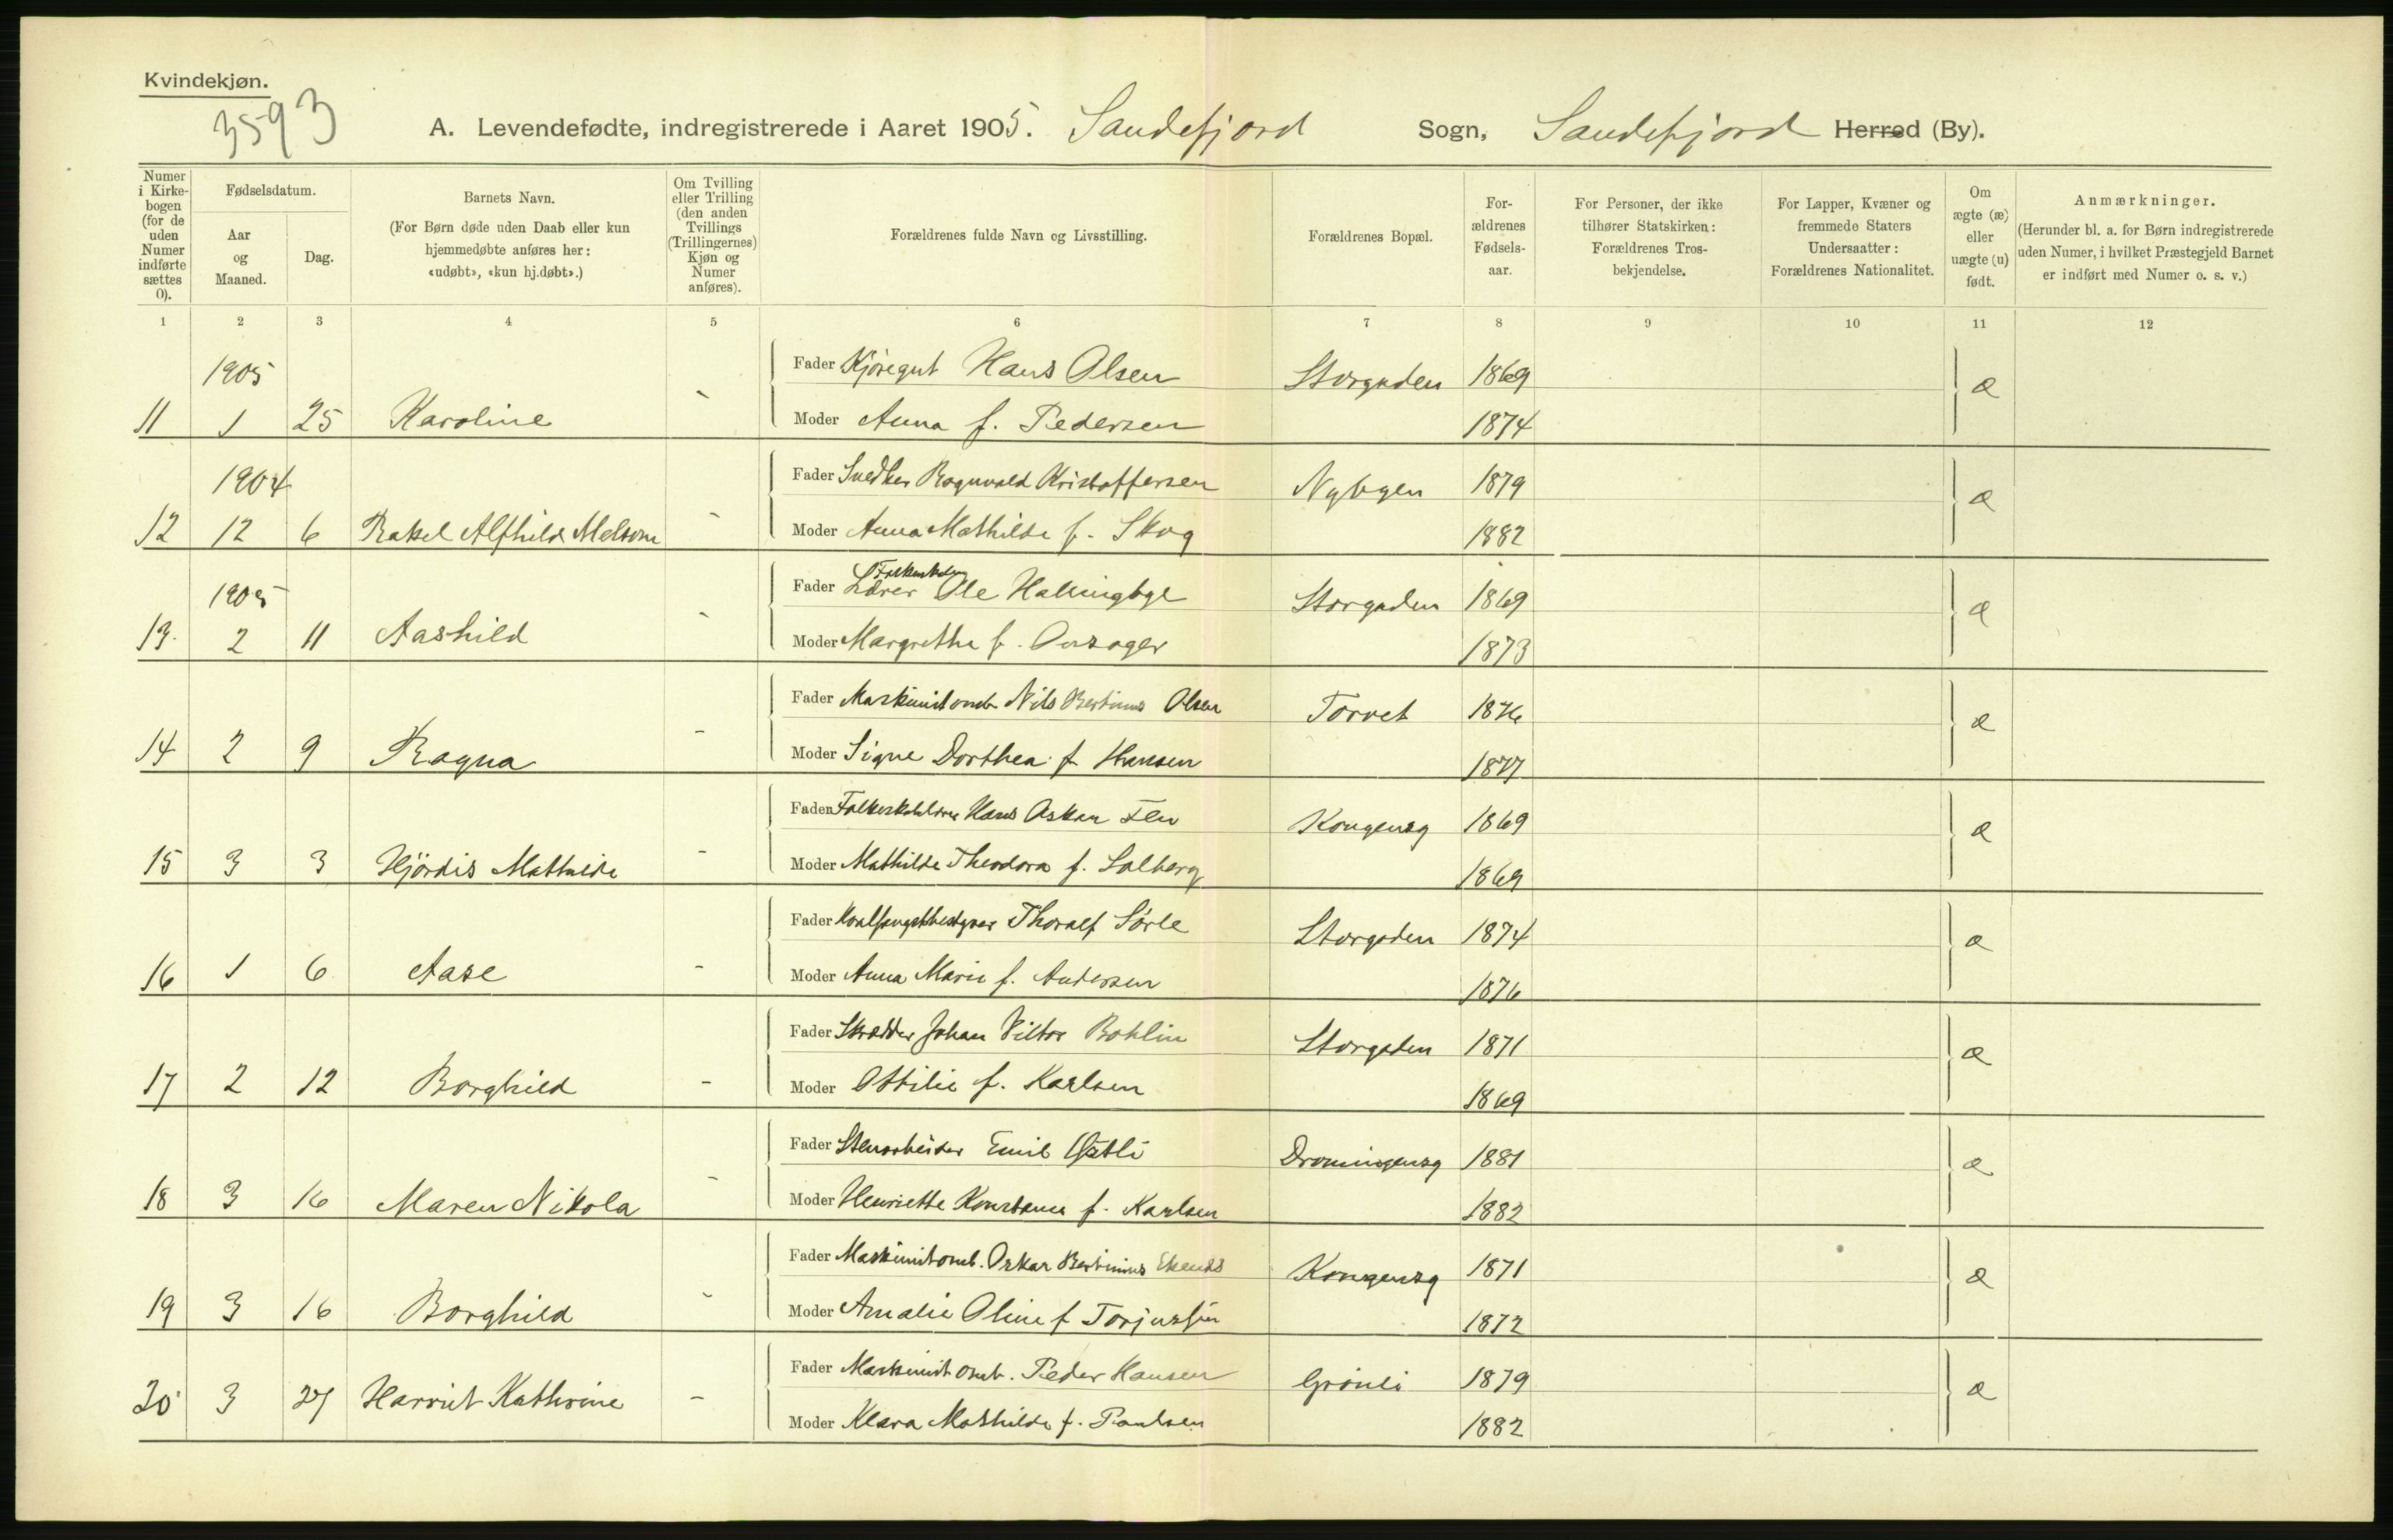 Kvindekjøn.
3593
A. Levendefødte, indregistrerede i Aaret 1905. Sandefjord Sogn, Sandefjord Herred (By).
Numer i Kirkebogen (for de uden Numer indførte sættes 0).
Fødselsdatum.
Aar og Maaned.
Dag.
Barnets Navn.
(For Børn døde uden Daab eller kun hjemmedøbte anføres her: «udøbt», «kun hj.døbt».)
Om Tvilling eller Trilling (den anden Tvillings (Trillingernes) Kjøn og Numer anføres).
Forældrenes fulde Navn og Livsstilling.
Forældrenes Bopæl.
Forældrenes Fødselsaar.
For Personer, der ikke tilhører Statskirken: Forældrenes Trosbekjendelse.
For Lapper, Kvæner og fremmede Staters Undersaatter: Forældrenes Nationalitet.
Om ægte (æ) eller uægte (u) født.
Anmærkninger.
(Herunder bl. a. for Børn indregistrerede uden Numer, i hvilket Præstegjeld Barnet er indført med Numer o. s. v.)
1 2 3 4 5 6 7 8 9 10 11 12
1905 Fader Kjøregut Hans Olsen Storgaden 1869 æ
11 1 25 Karoline - Moder Anna f. Pedersen 1874
1904 Fader Snedker Ragnvald Kristoffersen Nybyen 1879 æ
12 12 6 Rakel Alfhild Melsom - Moder Anna Mathilde f. Skog 1882
1905 Fader Folkeskole Lærer Ole Hallingbye Storgaden 1869 æ
13. 2 11 Aashild - Moder Margrethe f. Onsager 1873
Fader Maskinist omb Nils Bertinius Olsen Torvet 1876 æ
14 2 9 Ragna - Moder Signe Dorthea f. Hansen 1877
Fader Folkeskolelærer Hans Oskar Fen Kongensg 1869 æ
15 3 3 Hjördis Mathilde - Moder Mathilde Theodora f. Solberg 1869
Fader Hvalfangstbestyrer Thoralf Sørle Storgaden 1874 æ
16 1 6 Aase - Moder Anna Marie f. Andersen 1876
Fader Skrædder Johan Viktor Bohlin Storgaden 1871 æ
17 2 12 Borghild - Moder Ottilie f. Karlsen 1869
Fader Stenarbeider Emil Dronningensg 1881 æ
18 3 16 Maren Nikola - Moder Henriette Konstance f. Karlsen 1882
Fader Maskinist omb. Oskar Bertinius Kongensg 1871 æ
19 3 16 Borghild - Moder Amalie Oline f. Torjussen 1872
Fader Maskinist omb. Peder Hansen Grønli 1879 æ
20 3 27 Harriet Kathrine - Moder Klara Mathilde f. Paulsen 1882